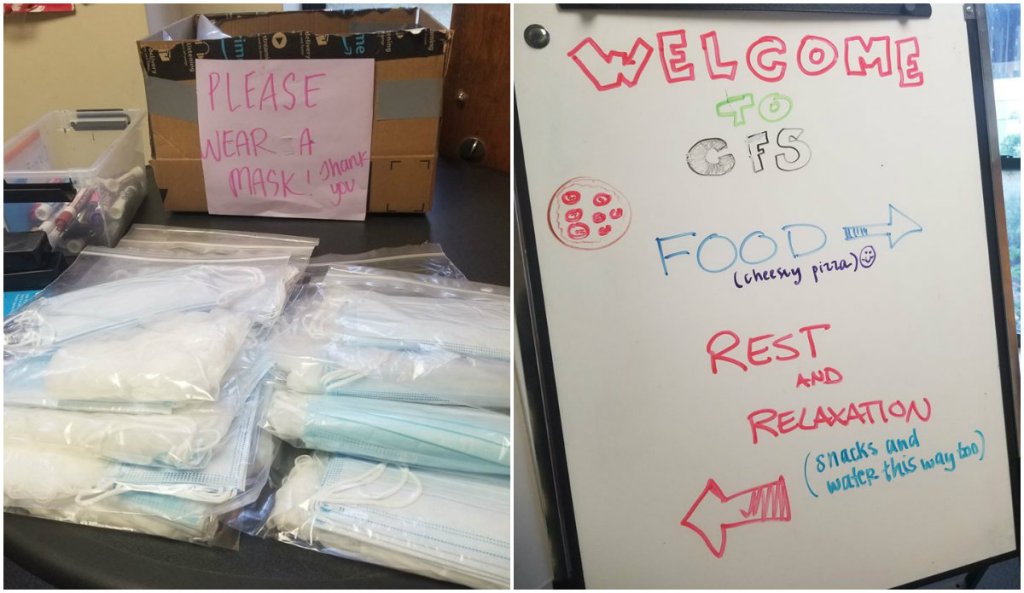 PLEASE
WEAR A
MASK! Thank
you
WELCOME
TO
CFS
FOOD
(cheesy pizza)
REST
AND
RELAXATION
(snacks and
water this way too)